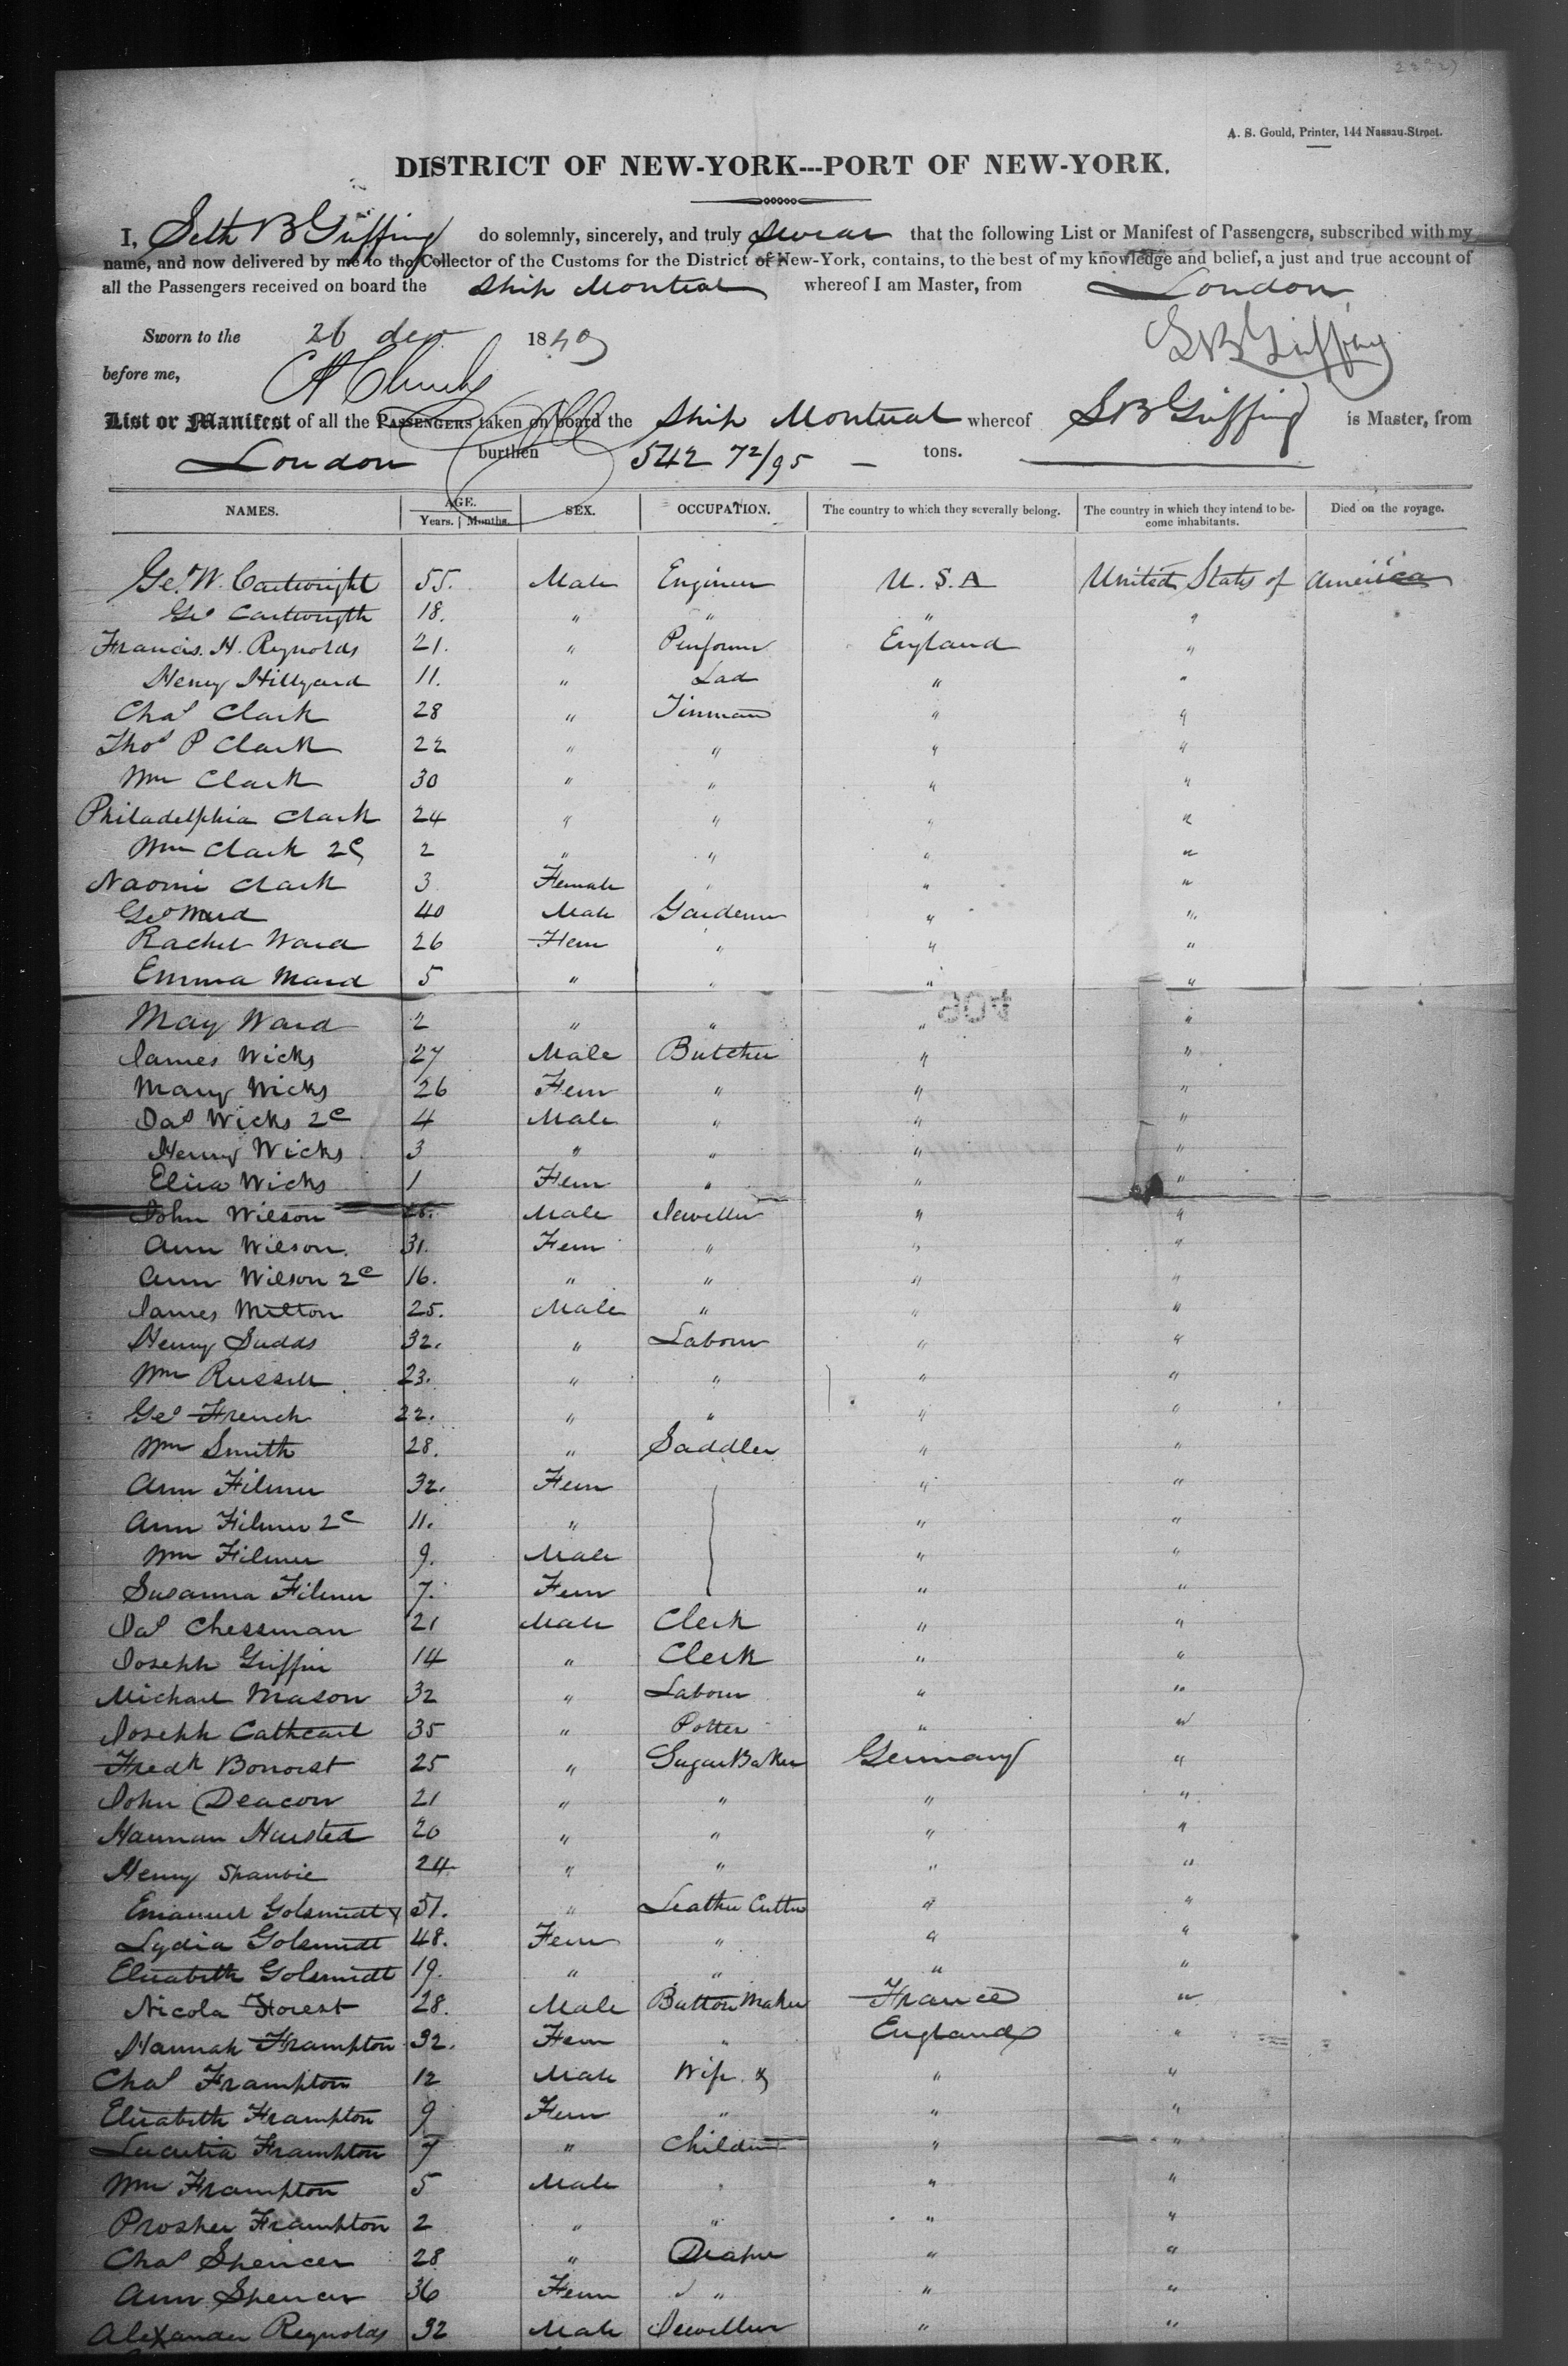 A. S. Gould, Printer, 144 Nassau-Street.
DISTRICT OF NEW-YORK---PORT OF NEW-YORK.
I, Seth B Griffing do solemnly, sincerely, and truly swear that the following List or Manifest of Passengers, subscribed with my
name, and now delivered by me to the Collector of the Customs for the District of New-York, contains, to the best of my knowledge and belief, a just and true account of
all the Passengers received on board the Ship Montreal whereof I am Master, from London
Sworn to the 26 dec 1840
S B Griffing
before me,
List or Manifest of all the PASSENGERS taken on board the Ship Montreal whereof S B Griffing is Master, from
London burthen 542 72/95 — tons.
NAMES. AGE. Years. | Months. SEX. OCCUPATION. The country to which they severally belong. The country in which they intend to become inhabitants. Died on the voyage.
Geo. W. Cartwright 55. Male Engineer U.S.A United States of America
Geo Cartwrigth 18. " " " "
Francis. H. Reynolds 21. " Performer England "
Henry Hillyard 11. " Lad " "
Chas Clark 28 " Tinman " "
Thos P Clark 22 " " " "
Wm Clark 30 " " " "
Philadelphia Clark 24 " " " "
Wm Clark 2d 2 " " " "
Naomi Clark 3 Female " " "
Geo Ward 40 Male Gardener " "
Rachel Ward 26 Fem " " "
Emma Ward 5 " " " "
904
May Ward 2 " " " "
James Wicks 27 Male Butcher " "
Mary Wicks 26 Fem " " "
Jas Wicks 2d 4 Male " " "
Henry Wicks 3 " " " "
Eliza Wicks 1 Fem " " "
John Wilson Male Jeweller " "
Ann Wilson. 31. Fem " " "
Ann Wilson 2d 16. " " " "
James Milton 25. Male " " "
Henry Sudds 32. " Labour " "
Wm Russell 23. " " " "
Geo French 22. " " " "
Wm Smith 28. " Saddler " "
Ann Filmer 32. Fem " "
Ann Filmer 2d 11. " " "
Wm Filmer 9. Male " "
Susanna Filmer 7. Fem " "
Jas Chessman 21 Male Clerk " "
Joseph Griffin 14 " Clerk " "
Michael Mason 32 " Labour " "
Joseph Cathcart 35 " Potter " "
Fredk Bonorst 25 " Sugar Baker Germany "
John Deacon 21 " " " "
Harman Harsted 20 " " " "
Henry 24 " " " "
Emanuel Golsmidt 51. " Leather Cutter " "
Lydia Golsmidt 48. Fem " " "
Elizabeth Golsmidt 19. " " " "
Nicola Florest 28. Male Button Maker France "
Hannah Frampton 32. Fem " England "
Chas Frampton 12 Male Wife & " "
Elizabeth Frampton 9 Fem " " "
Lucretia Frampton 7 " Children " "
Wm Frampton 5 Male " " "
Prosper Frampton 2 " " " "
Chas Spencer 28 " Draper " "
Ann Spencer 36 Fem " " "
Alexander Reynolds 32 Male Jeweller " "